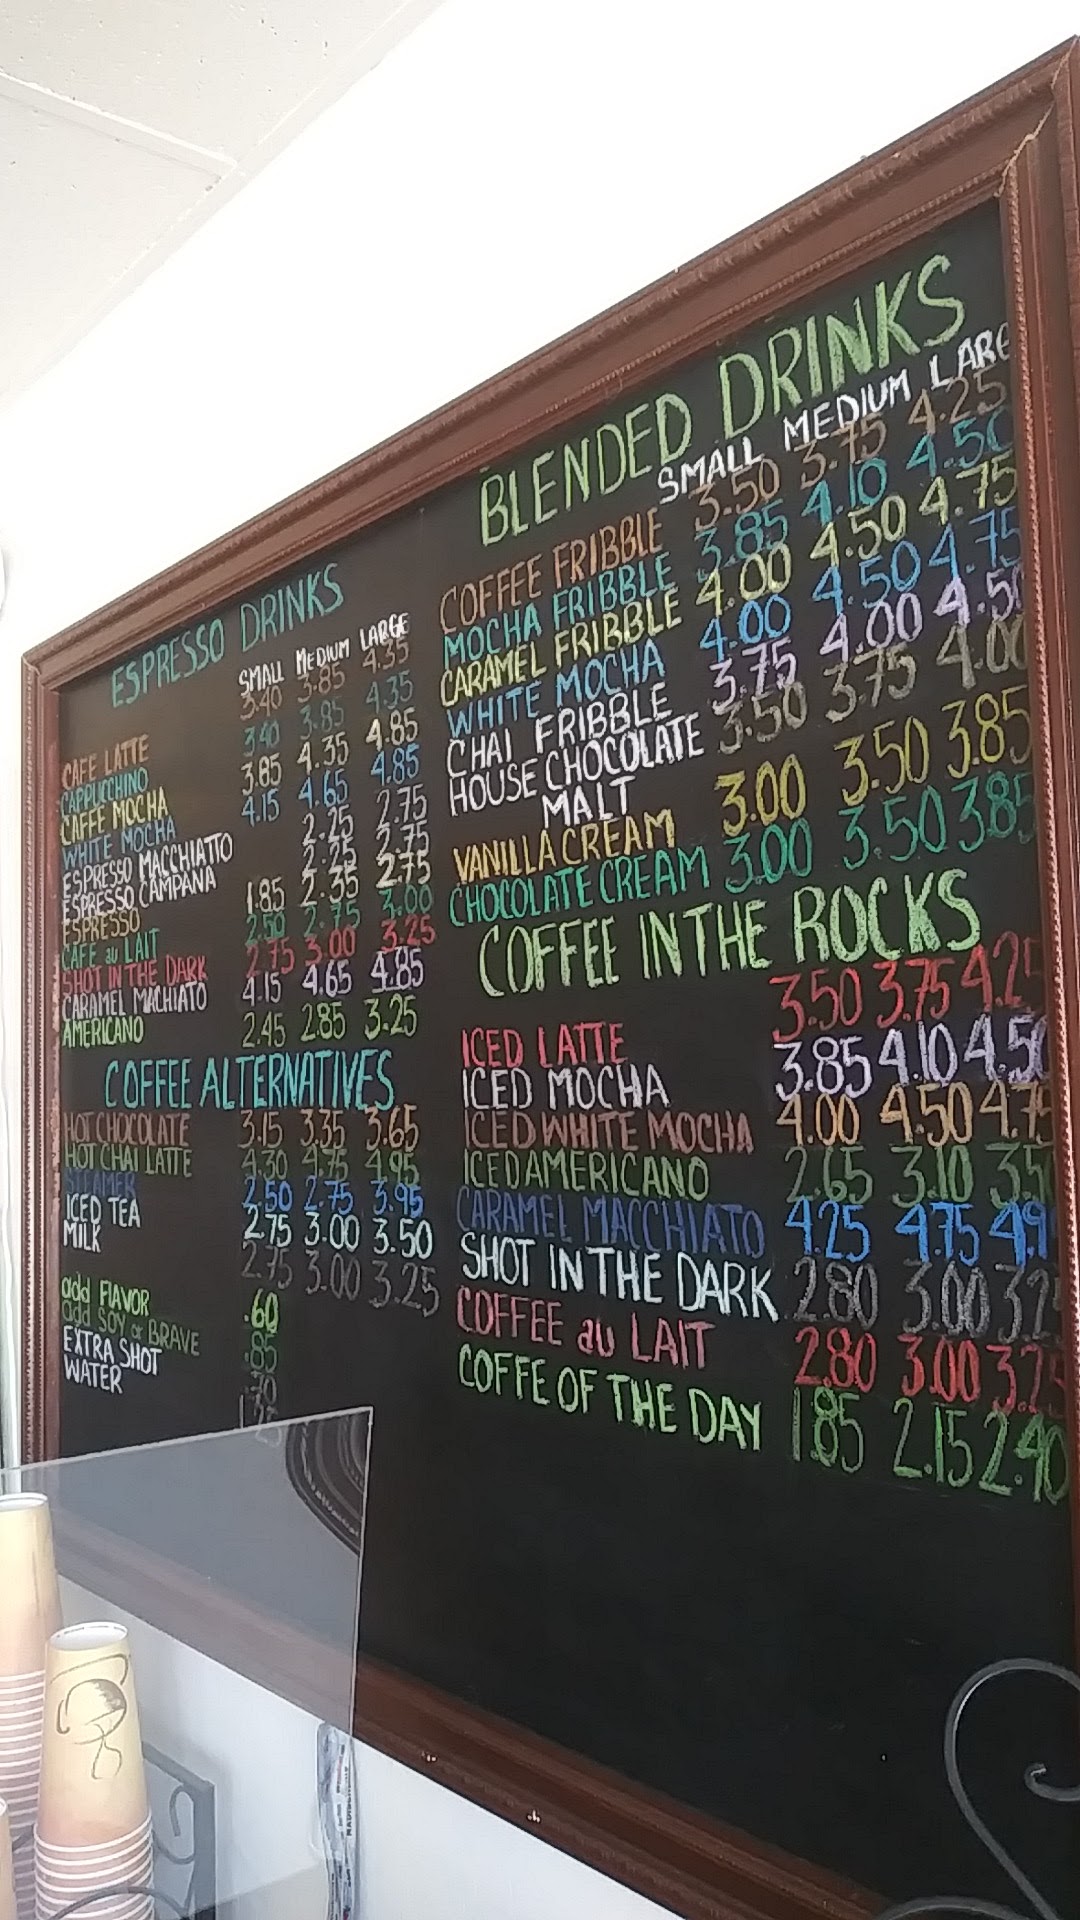 ESPRESSO DRINKS
SMALL MEDIUM LARGE
CAFE LATTE 3.40 3.85 4.35
CAPPUCCHINO 3.40 3.85 4.35
CAFFE MOCHA 3.85 4.35 4.85
WHITE MOCHA 4.15 4.65 4.85
ESPRESSO MACCHIATTO 2.25 2.75
ESPRESSO CAMPANA 2.25 2.75
ESPRESSO 1.85 2.35 2.75
CAFE au LAIT 2.50 2.75 3.00
SHOT IN THE DARK 2.75 3.00 3.25
CARAMEL MACHIATO 4.15 4.65 4.85
AMERICANO 2.45 2.85 3.25
COFFEE ALTERNATIVES
HOT CHOCOLATE 3.15 3.35 3.65
HOT CHAI LATTE 4.30 4.75 4.95
STEAMER 2.50 2.75 3.95
ICED TEA 2.75 3.00 3.50
MILK 2.75 3.00 3.25
add FLAVOR .60
add SOY or BRAVE .85
EXTRA SHOT .70
WATER 1.25
BLENDED DRINKS
SMALL MEDIUM LARG
COFFEE FRIBBLE 3.50 3.75 4.25
MOCHA FRIBBLE 3.85 4.10 4.50
CARAMEL FRIBBLE 4.00 4.50 4.75
WHITE MOCHA 4.00 4.50 4.75
CHAI FRIBBLE 3.75 4.00 4.50
HOUSE CHOCOLATE 3.50 3.75 4.00
MALT
VANILLA CREAM 3.00 3.50 3.85
CHOCOLATE CREAM 3.00 3.50 3.85
COFFEE IN THE ROCKS
ICED LATTE 3.50 3.75 4.25
ICED MOCHA 3.85 4.10 4.50
ICED WHITE MOCHA 4.00 4.50 4.75
ICED AMERICANO 2.65 3.10 3.50
CARAMEL MACCHIATO 4.25 4.75 4.9
SHOT IN THE DARK 2.80 3.00 3.2
COFFEE au LAIT 2.80 3.00 3.25
COFFE OF THE DAY 1.85 2.15 2.40